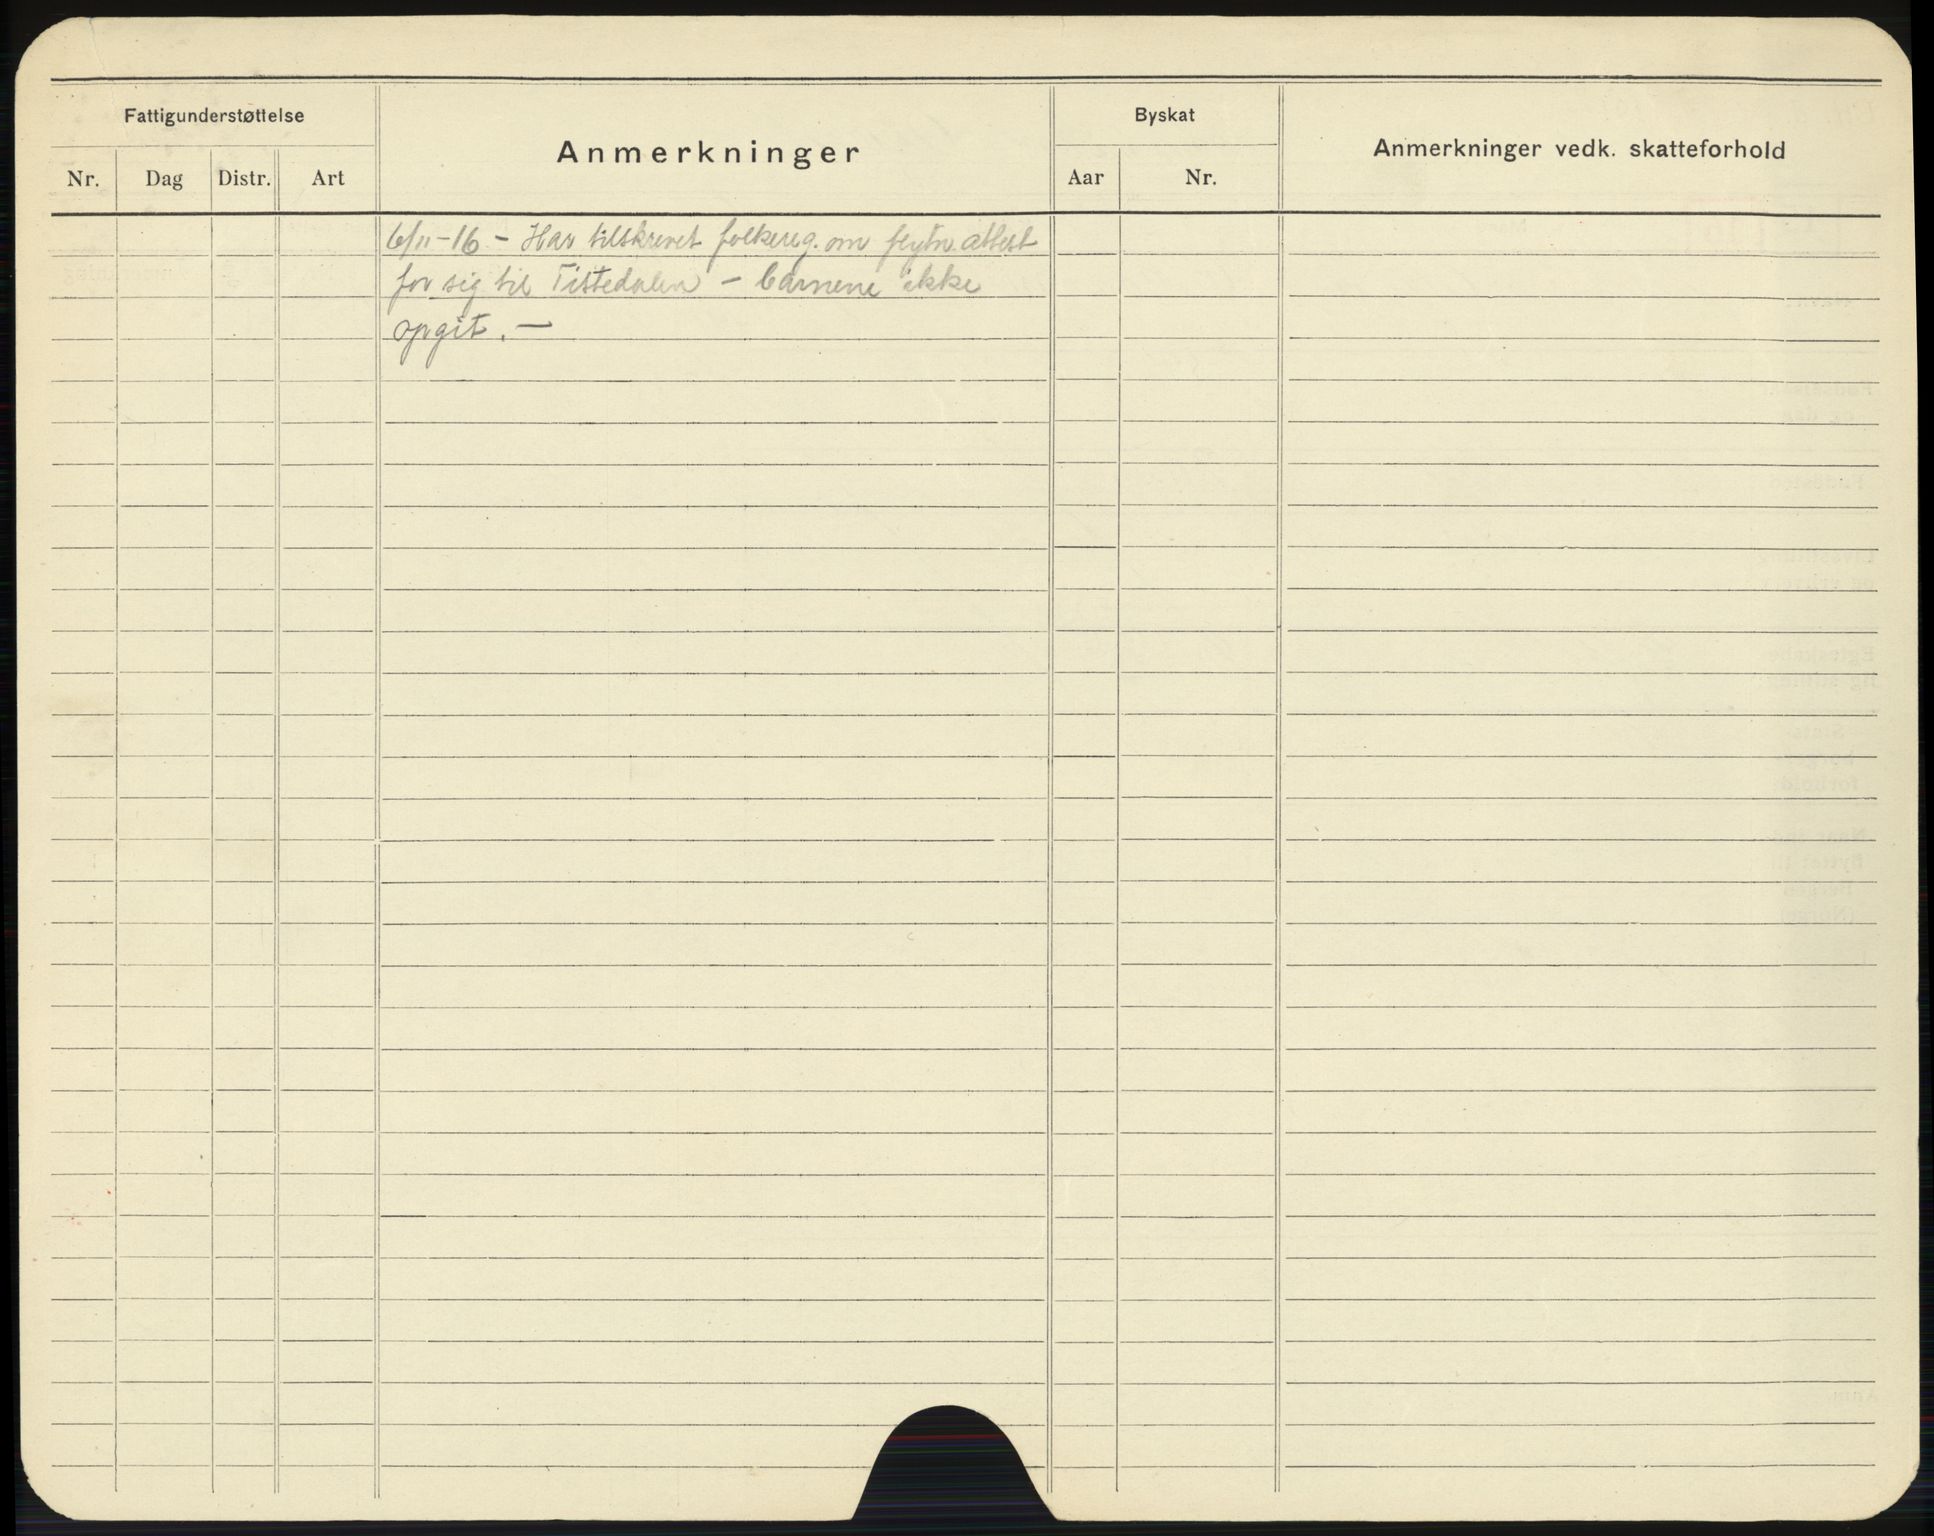 Fattigunderstøttelse
Anmerkninger
Byskat
Anmerkninger vedk. skatteforhold
Nr. Dag Distr. Art
Aar Nr.
6/11-16 - Har tilskrevet folkereg. om flytn. attest
for sig til Tistedalen - barnene ikke
opgit. -